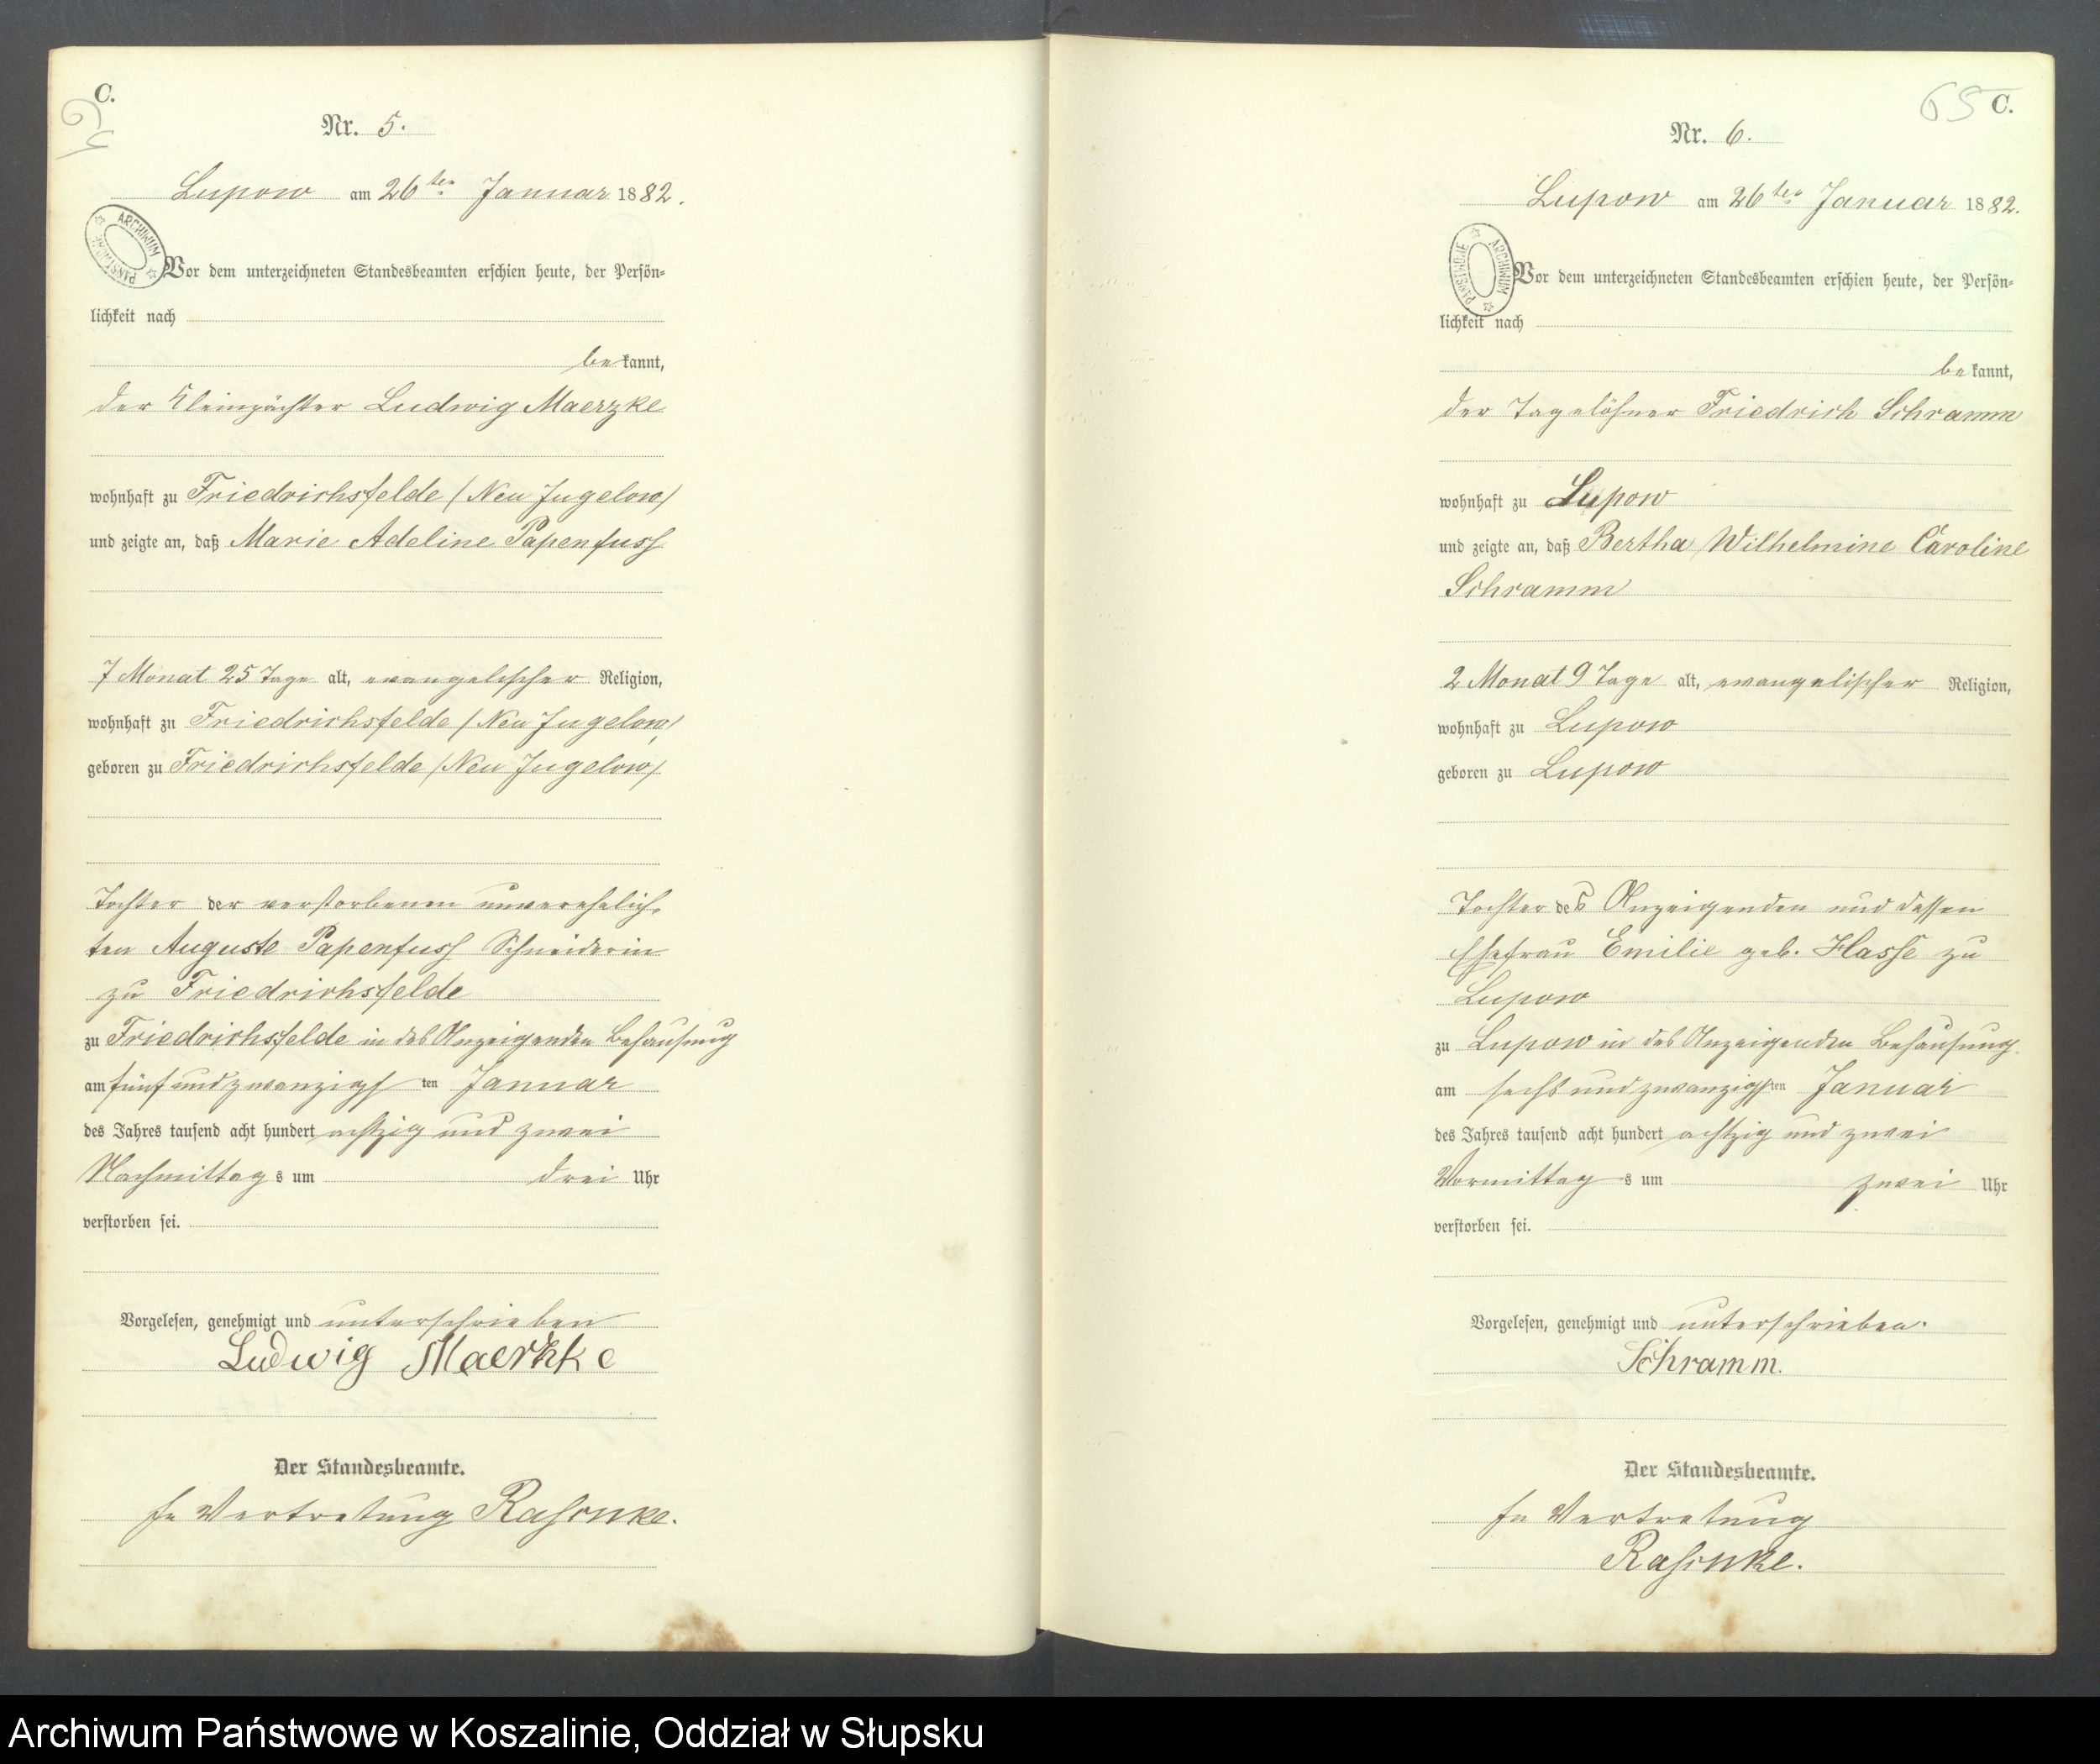 C.
65
Nr. 5.
Lupow am 26ten Januar 1882.
ARCHIWUM PAŃSTWOWE
Vor dem unterzeichneten Standesbeamten erschien heute, der Persön-
lichkeit nach
bekannt,
der Kleinpächter Ludwig Maerzke
wohnhaft zu Friedrichsfelde /Neu Jugelow/
und zeigte an, daß Marie Adeline Papenfuss
7 Monat 25 Tage alt, evangelischer Religion,
wohnhaft zu Friedrichsfelde /Neu Jugelow/
geboren zu Friedrichsfelde /Neu Jugelow/
Tochter der verstorbenen unverehelich-
ten Auguste Papenfuss Schneiderin
zu Friedrichsfelde
zu Friedrichsfelde in des Anzeigenden Behausung
am fünf und zwanzigsten Januar
des Jahres tausend acht hundert achtzig und zwei
Nachmittags um drei Uhr
verstorben sei.
Vorgelesen, genehmigt und unterschrieben
Ludwig Maerzke
Der Standesbeamte.
In Vertretung Raschke.
65 C.
Nr. 6.
Lupow am 26ten Januar 1882.
ARCHIWUM PAŃSTWOWE
Vor dem unterzeichneten Standesbeamten erschien heute, der Persön-
lichkeit nach
bekannt,
der Tagelöhner Friedrich Schramm
wohnhaft zu Lupow
und zeigte an, daß Bertha Wilhelmine Caroline
Schramm
2 Monat 9 Tage alt, evangelischer Religion,
wohnhaft zu Lupow
geboren zu Lupow
Tochter des Anzeigenden und dessen
Ehefrau Emilie geb. Hasse zu
Lupow
zu Lupow in des Anzeigenden Behausung.
am sechs und zwanzigsten Januar
des Jahres tausend acht hundert achtzig und zwei
Vormittags um zwei Uhr
verstorben sei.
Vorgelesen, genehmigt und unterschrieben.
Schramm.
Der Standesbeamte.
In Vertretung
Raschke.
Archiwum Państwowe w Koszalinie, Oddział w Słupsku